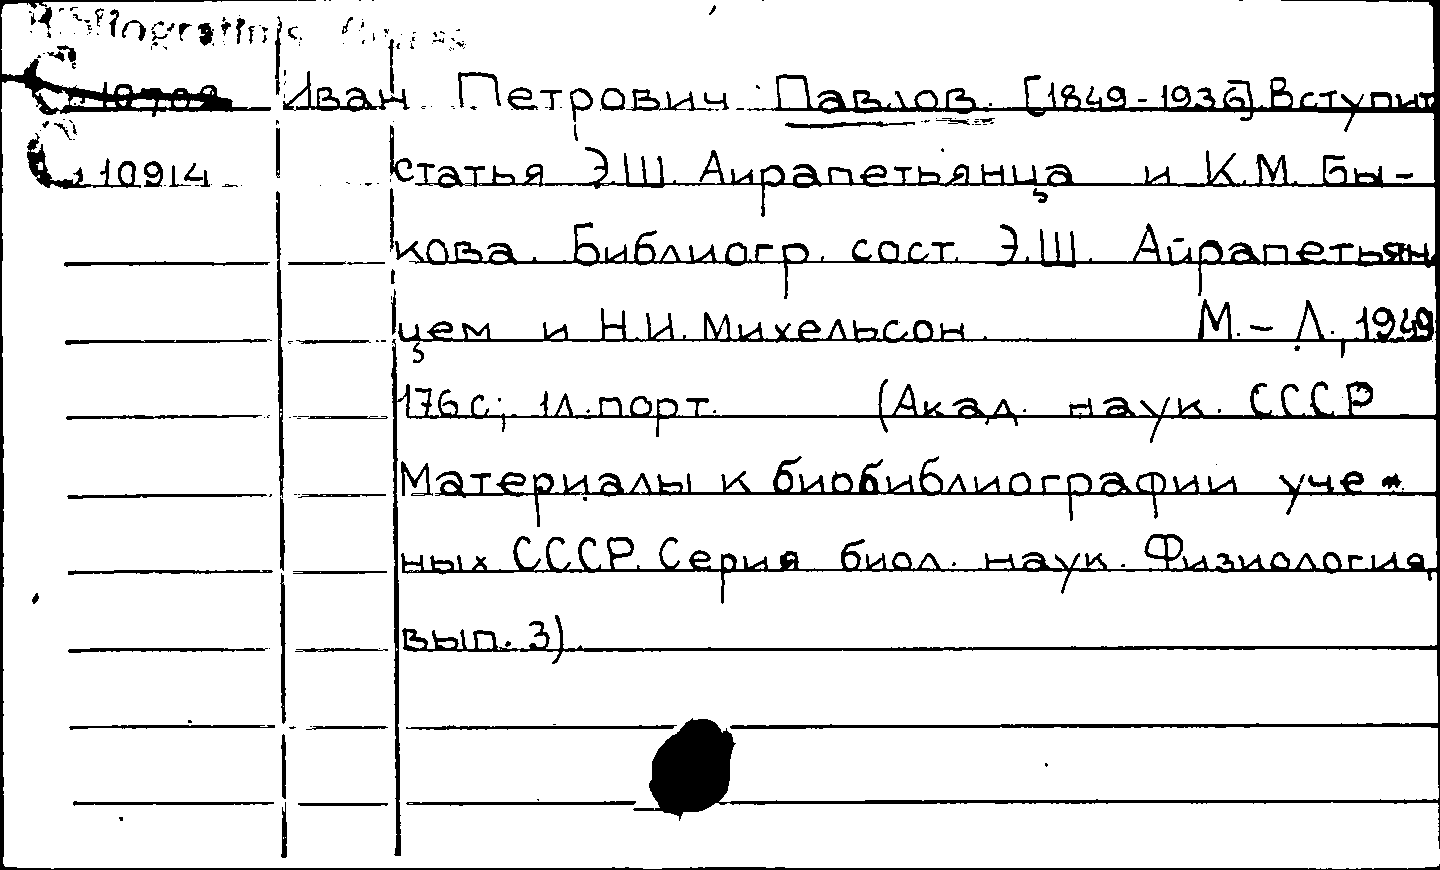 Bibliografinis
С 10702 Иван Петрович Павлов. [1849-1936]. Вступит
С 10914 статья Э.Ш. Аирапетьянца и К.М. Бы-
кова. Библиогр. сост. Э.Ш. Айрапетьян-
цем и Н.И. Михельсон. М.-Л., 1949
176 с; 1л. порт. (Акад. наук. СССР
Материалы к биобиблиографии уче-
ных СССР. Серия биол. наук. Физиология,
вып. 3).